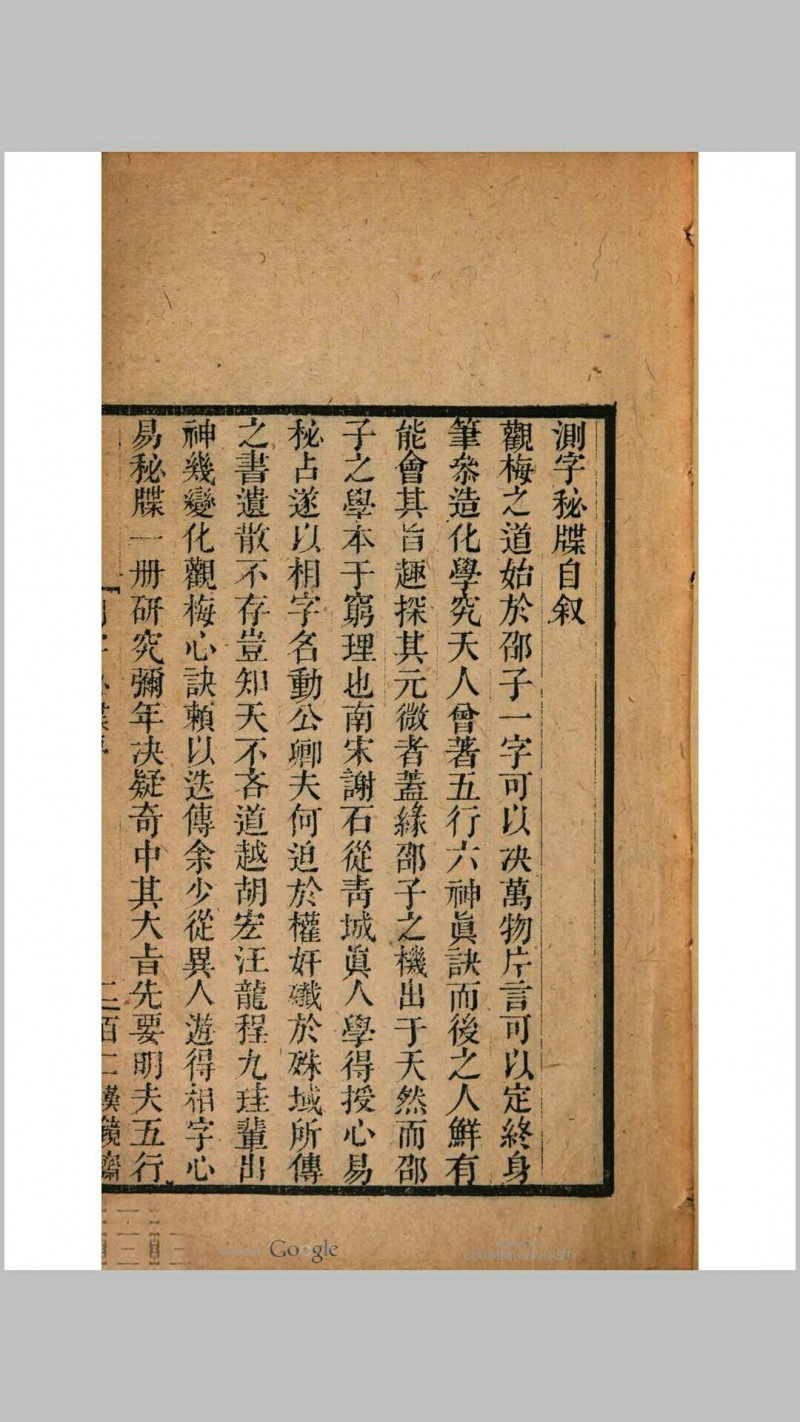 測字秘牒自叙
觀梅之道始於邵子一字可以决萬物片言可以定終身
筆叅造化學究天人曾著五行六神眞訣而後之人鮮有
能會其旨趣探其元微者蓋緣邵子之機出于天然而邵
子之學本于窮理也南宋謝石從靑城眞人學得授心易
秘占遂以相字名動公卿夫何迫於權奸殱於殊域所傳
之書遺散不存豈知天不吝道越胡宏汪龍程九珪輩出
神幾變化觀梅心訣賴以迭傳余少從異人遊得相字心
易秘牒一册研究彌年决疑奇中其大㫖先要明夫五行
二百二漢鏡齋
Google